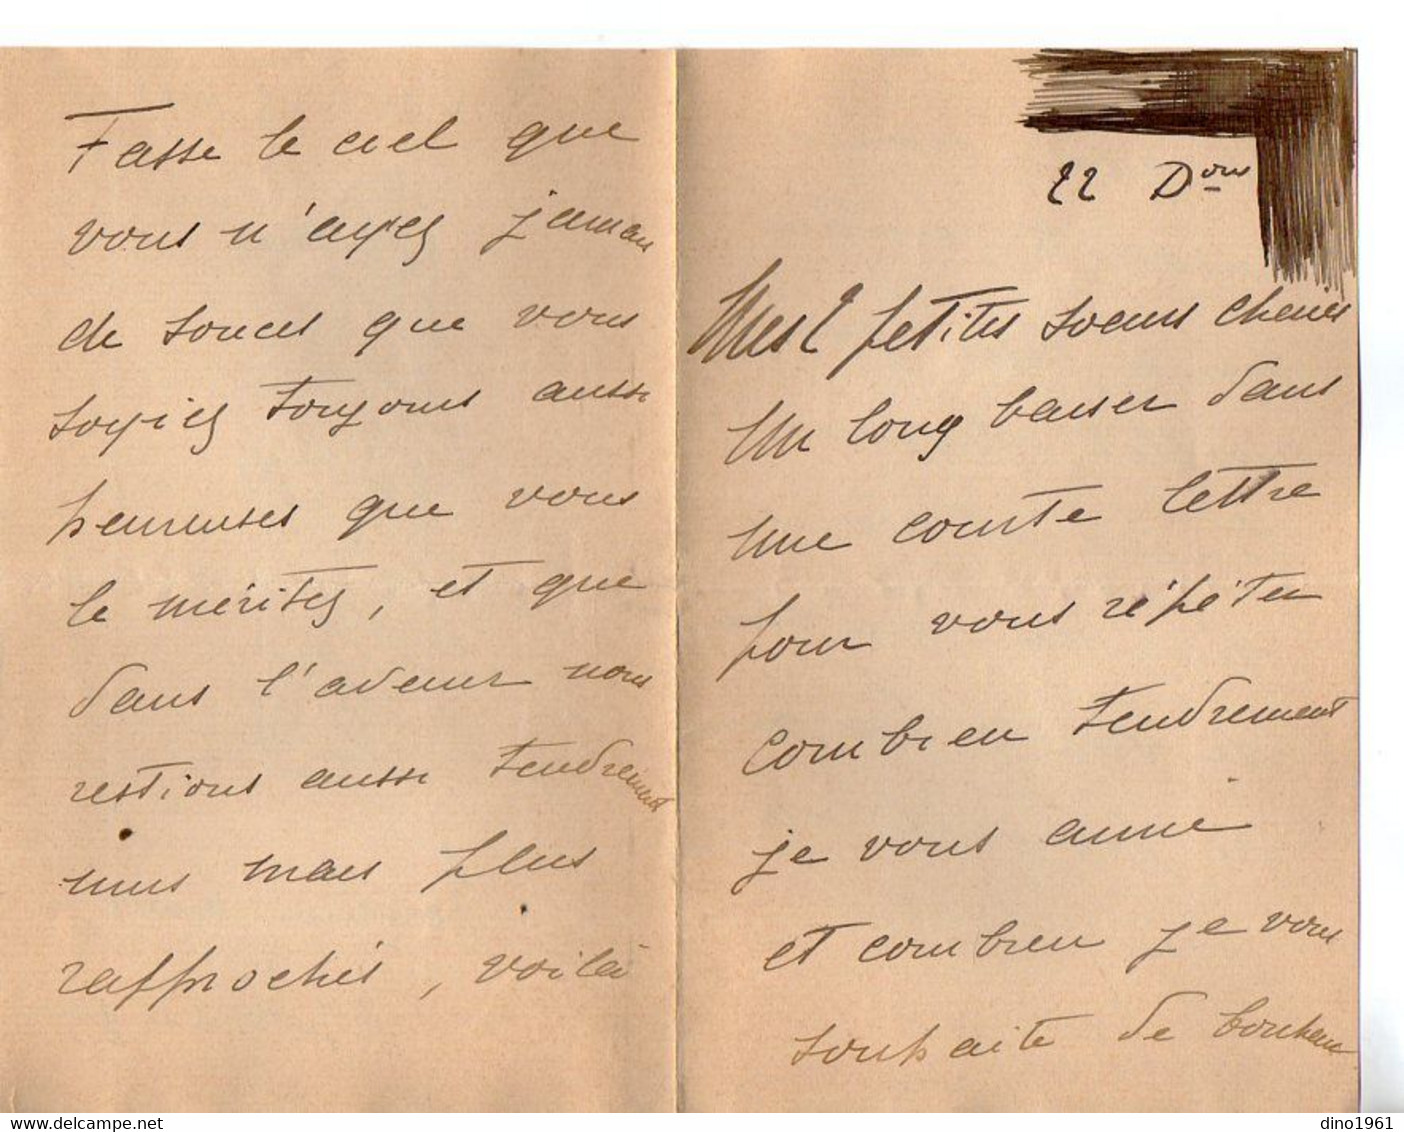 Fasse le ciel que
vous n'ayez jamais
de soucis que vous
soyiez toujours aussi
heureuses que vous
le méritez, et que
dans l'avenir nous
restions aussi tendrement
unis mais plus
rapprochés, voilà
22 Dbre
Mes 2 petites soeurs cheries
Un long baiser dans
une courte lettre
pour vous répéter
combien tendrement
je vous aime
et combien je vous
souhaite de bonheur
delcampe.net
dino1961